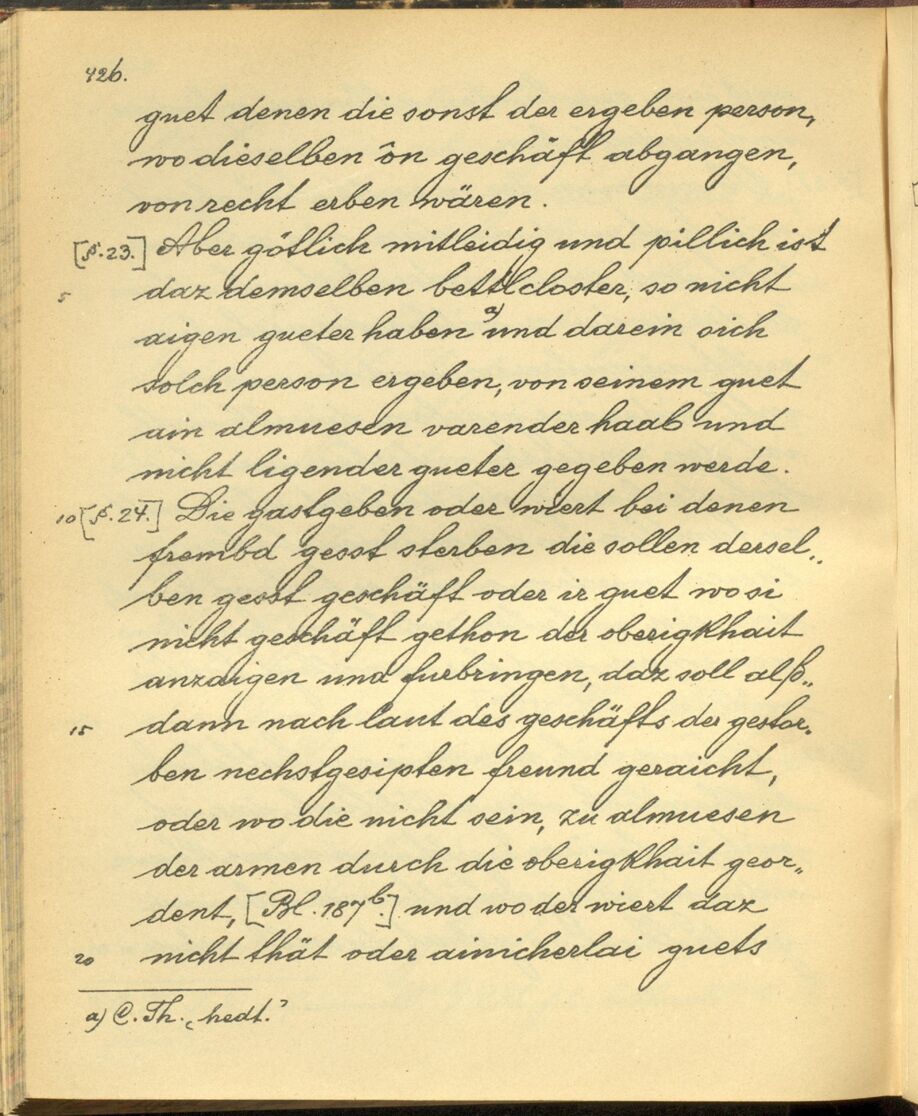 426.
guet denen die sonst der ergeben person,
wo dieselben ôn geschäft abgangen,
von recht erben wären.
[§. 23.] Aber götlich mitleidig und pillich ist
5 daz demselben bettlcloster, so nicht
aigen gueter haben a) und darein sich
solch person ergeben, von seinem guet
ain almuesen varender haab und
nicht ligender gueter gegeben werde.
10 [§. 24.] Die gastgeben oder wiert bei denen
frembd gesst sterben die sollen dersel„
ben gesst geschäft oder ir guet wo si
nicht geschäft gethon der oberigkhait
anzaigen und furbringen, daz soll alß„
15 dann nach laut des geschäfts der gestor„
ben nechstgesipten freund geraicht,
oder wo die nicht sein, zu almuesen
der armen durch die oberigkhait geor„
dent, [Bl. 187b.] und wo der wiert daz
20 nicht thät oder ainicherlai guets
a) C. Th. „hedt.“